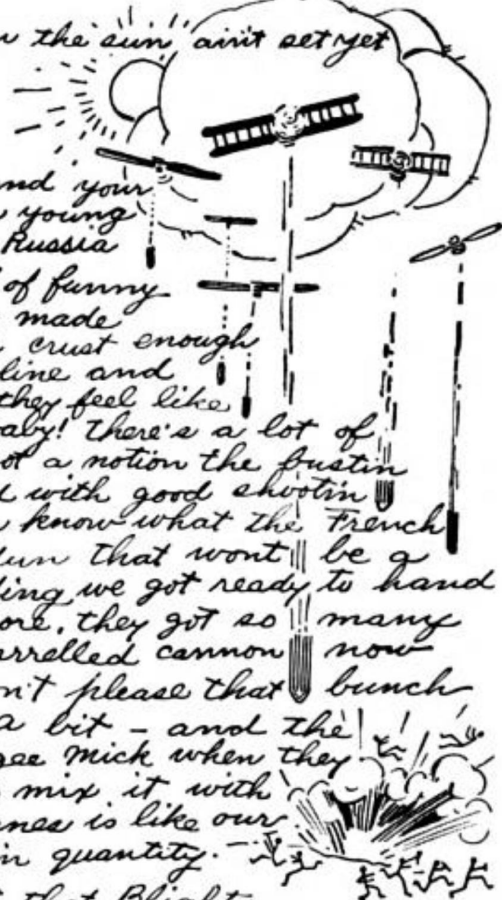 the sun ain't set yet
nd your
young
Russia
of funny
made
crust enough
line and
they feel like
avy! There's a lot of
ot a notion the bustin
d with good shootin
know what the French
un that wont be a
ding we got ready to hand
ore, they got so many
arrelled cannon now
n't please that bunch
a bit – and the
gee Mick when they
mix it with
nes is like our
in quantity.
that Blight